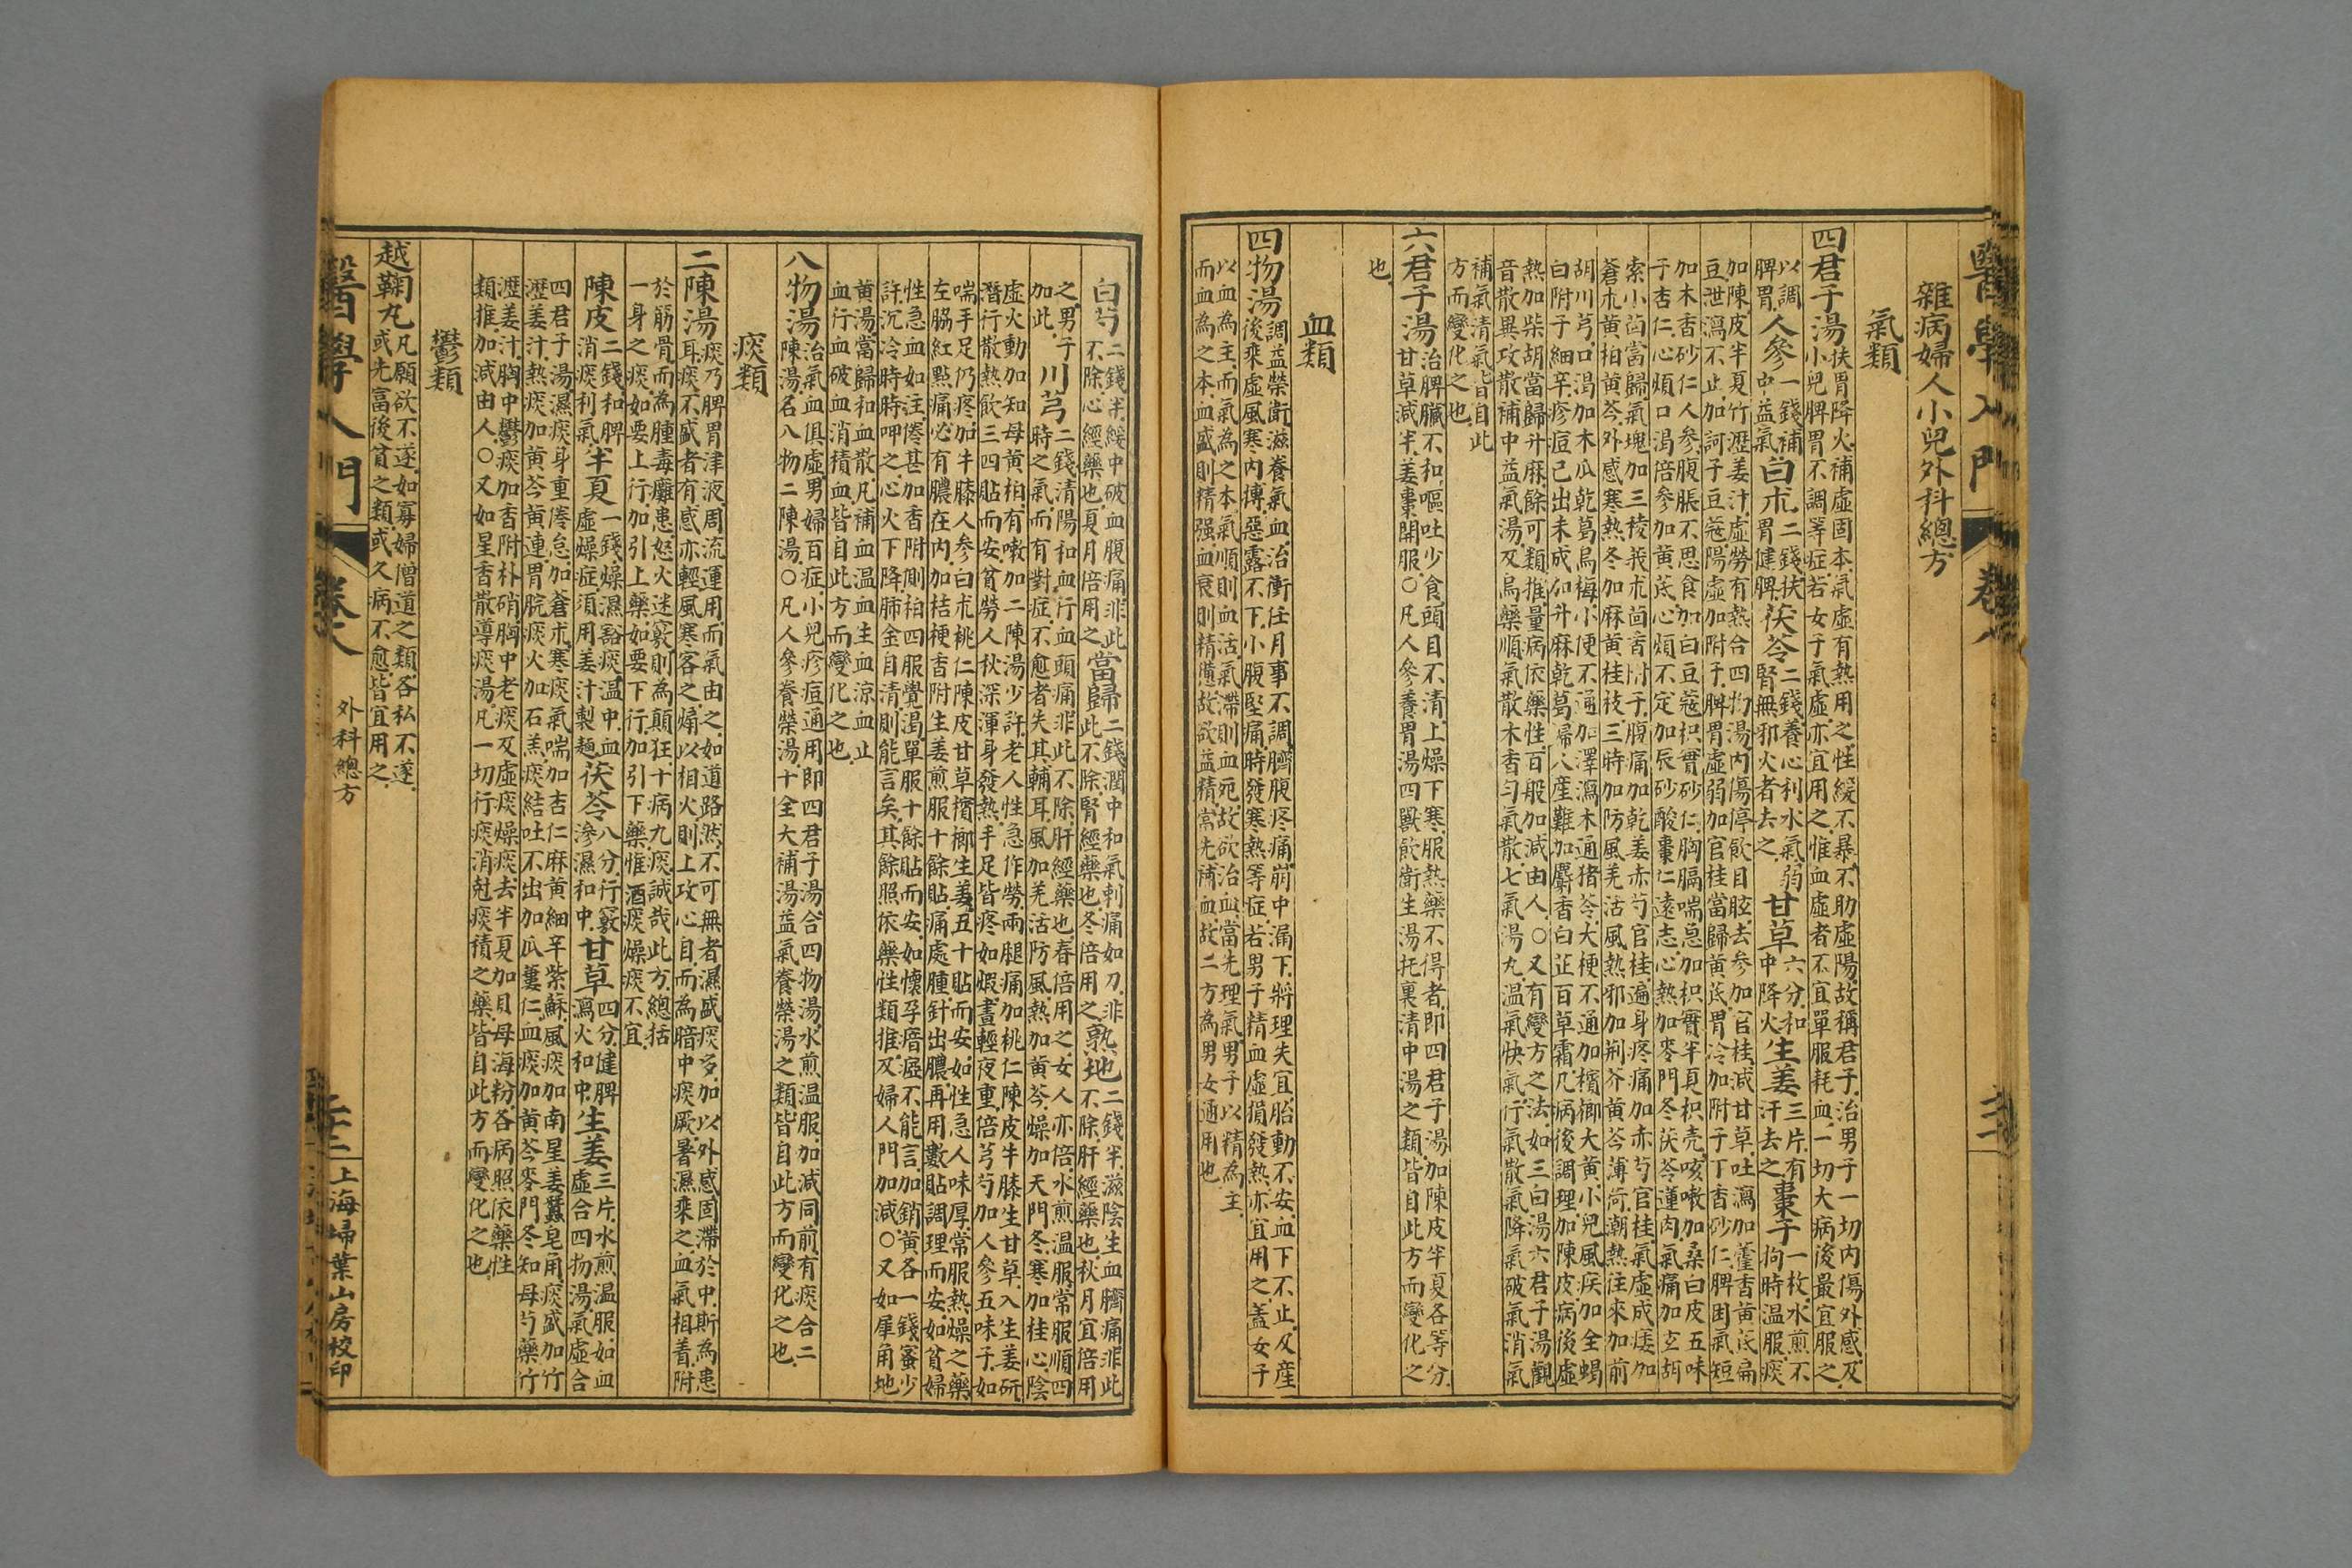 醫學入門
卷八
雜病婦人小兒外科總方
氣類
四君子湯扶胃降火補虛固本氣虛有熱用之性緩不暴不助虛陽故稱君子治男子一切內傷外感及
小兒脾胃不調等症若女子氣虛亦宜用之惟血虛者不宜單服耗血一切大病後最宜服之
以調脾胃人參一錢補中益氣白朮二錢扶胃健脾茯苓二錢養心利水氣弱腎無邪火者去之甘草六分和中降火生姜三片有汗去之棗子一枚水煎不拘時溫服痰
加陳皮半夏竹瀝姜汁虛勞有熱合四物湯內傷停飲目眩去參加官桂減甘草吐瀉加藿香黃芪扁
豆泄瀉不止加訶子豆蔻陽虛加附子脾胃虛弱加官桂當歸黃芪胃冷加附子丁香砂仁脾困氣短
加木香砂仁人參腹脹不思食加白豆蔻枳實砂仁胸膈喘急加枳實半夏枳壳咳嗽加桑白皮五味
子杏仁心煩口渴倍參加黃芪心煩不定加辰砂酸棗仁遠志心熱加麥門冬茯苓蓮肉氣痛加玄胡
索小茴當歸氣塊加三棱莪朮茴香附子腹痛加乾姜赤芍官桂遍身疼痛加赤芍官桂氣虛成痿加
蒼朮黃柏黃芩外感寒熱冬加麻黃桂枝三時加防風羌活風熱邪加荊芥黃芩薄荷潮熱往來加前
胡川芎口渴加木瓜乾葛烏梅小便不通加澤瀉木通猪苓大梗不通加檳榔大黃小兒風疾加全蝎
白附子細辛疹痘已出未成加升麻乾葛婦人產難加麝香白芷百草霜凡病後調理加陳皮病後虛
熱加柴胡當歸升麻餘可類推量病依藥性百般加減由人○又有變方之法如三白湯六君子湯觀
音散異攻散補中益氣湯及烏藥順氣散木香勻氣散七氣湯九溫氣快氣行氣散氣降氣破氣消氣
補氣清氣皆自此
方而變化之也
六君子湯治脾臟不和嘔吐少食頭目不清上燥下寒服熱藥不得者即四君子湯加陳皮半夏各等分
甘草減半姜棗開服○凡人參養胃湯四獸飲衛生湯托裏清中湯之類皆自此方而變化之
也
血類
四物湯調益榮衛滋養氣血治衝任月事不調臍腹疼痛崩中漏下將理失宜胎動不安血下不止及產
後乘虛風寒內搏惡露不下小腹堅痛時發寒熱等症若男子精血虛損發熱亦宜用之蓋女子
以血為主而氣為之本氣順則血活氣滯則血宛故欲治血當先理氣男子以精為主
而血為之本血盛則精强血衰則精憊故欲益精常先補血故二方為男女通用也
白芍二錢半緩中破血腹痛非此不除心經藥也夏月倍用之當歸二錢潤中和氣刺痛如刀非此不除腎經藥也冬倍用之熟地二錢半滋陰生血臍痛非此不除肝經藥也秋月宜倍用
之男子川芎二錢清陽和血行血頭痛非此不除肝經藥也春倍用之女人亦倍水煎溫服常服順四
加此時之氣而有對症不愈者失其輔耳風加羌活防風熱加黃芩燥加天門冬寒加桂心陰
虛火動加知母黃柏有嗽加二陳湯少許老人性急作勞兩腿痛加桃仁陳皮牛膝生甘草入生姜研
潛行散熱飲三四貼而安貧勞人秋深渾身發熱手足皆疼如煆晝輕夜重倍芎芍加人參五味子如
喘手足仍疼加牛膝人參白朮桃仁陳皮甘草檳榔生姜五十貼而安如性急人味厚常服熱燥之藥
左脇紅點痛必有膿在內加桔梗香附生姜煎服十餘貼痛處腫針出膿再用數貼調理而安如貧婦
性急血如注倦甚加香附側柏四服覺渴單服十餘貼而安如懷孕瘖瘂不能言加銷黃各一錢蜜少
許沉冷時時呷之心火下降肺金自清則能言矣其餘照依藥性類推及婦人門加減○又如犀角地
黃湯當歸和血散凡補血溫血生血涼血止
血行血破血消積血皆自此方而變化之也
八物湯治氣血俱虛男婦百症小兒疹痘通用即四君子湯合四物湯水煎溫服加減同前有痰合二
陳湯名八物二陳湯○凡人參養榮湯十全大補湯益氣養榮湯之類皆自此方而變化之也
痰類
二陳湯痰乃脾胃津液周流運用而氣由之如道路然不可無者濕盛痰多加以外感固滯於中斯為患
耳痰不盛者有感亦輕風寒客之煽以相火則上攻心目而為暗中痰厥暑濕乘之血氣相着附
於筋骨而為腫毒癱患怒火迷竅則為顛狂十病九痰誠哉此方總括
一身之痰如要上行加引上藥如要下行加引下藥惟酒痰燥痰不宜
陳皮二錢和脾消痰利氣半夏一錢燥濕豁痰溫中血虛燥症須用姜汁製麯茯苓八分行竅滲濕和中甘草四分健脾瀉火和中生姜三片水煎溫服如血虛合四物湯氣虛合
四君子湯濕痰身重倦怠加蒼朮寒痰氣喘加杏仁麻黃細辛紫蘇風痰加南星姜蠶皂角痰盛加竹
瀝姜汁熱痰加黃芩黃連胃脘痰火加石羔痰結吐不出加瓜蔞仁血痰加黃芩麥門冬知母芍藥竹
瀝姜汁胸中鬱痰加香附朴硝胸中老痰及虛痰燥痰去半夏加貝母海粉各病照依藥性
類推加減由人○又如星香散導痰湯凡一切行痰消尅痰積之藥皆自此方而變化之也
鬱類
越鞠丸凡願欲不遂如寡婦僧道之類名私不遂
或先富後貧之類或久病不愈皆宜用之
醫學入門
卷八
外科總方
上海埽葉山房校印